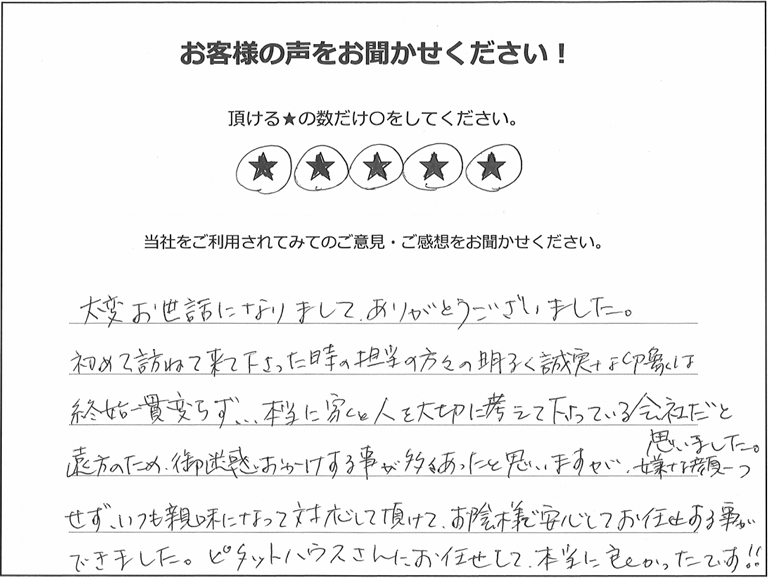 お客様の声をお聞かせください！
頂ける★の数だけ〇をしてください。
★ ★ ★ ★ ★
当社をご利用されてみてのご意見・ご感想をお聞かせください。
大変お世話になりまして、ありがとうございました。
初めて訪ねて来て下さった時の担当の方々の明るく誠実な印象は
終始一貫変らず、、、本当に家と人を大切に考えて下さっている会社だと
思いました。
遠方のため、御迷惑おかけする事が多くあったと思いますが、嫌な顔一つ
せず、いつも親味になって対応して頂けて、お陰様で安心してお任せる事が
できました。ピタットハウスさんにお任せして、本当に良かったです!!